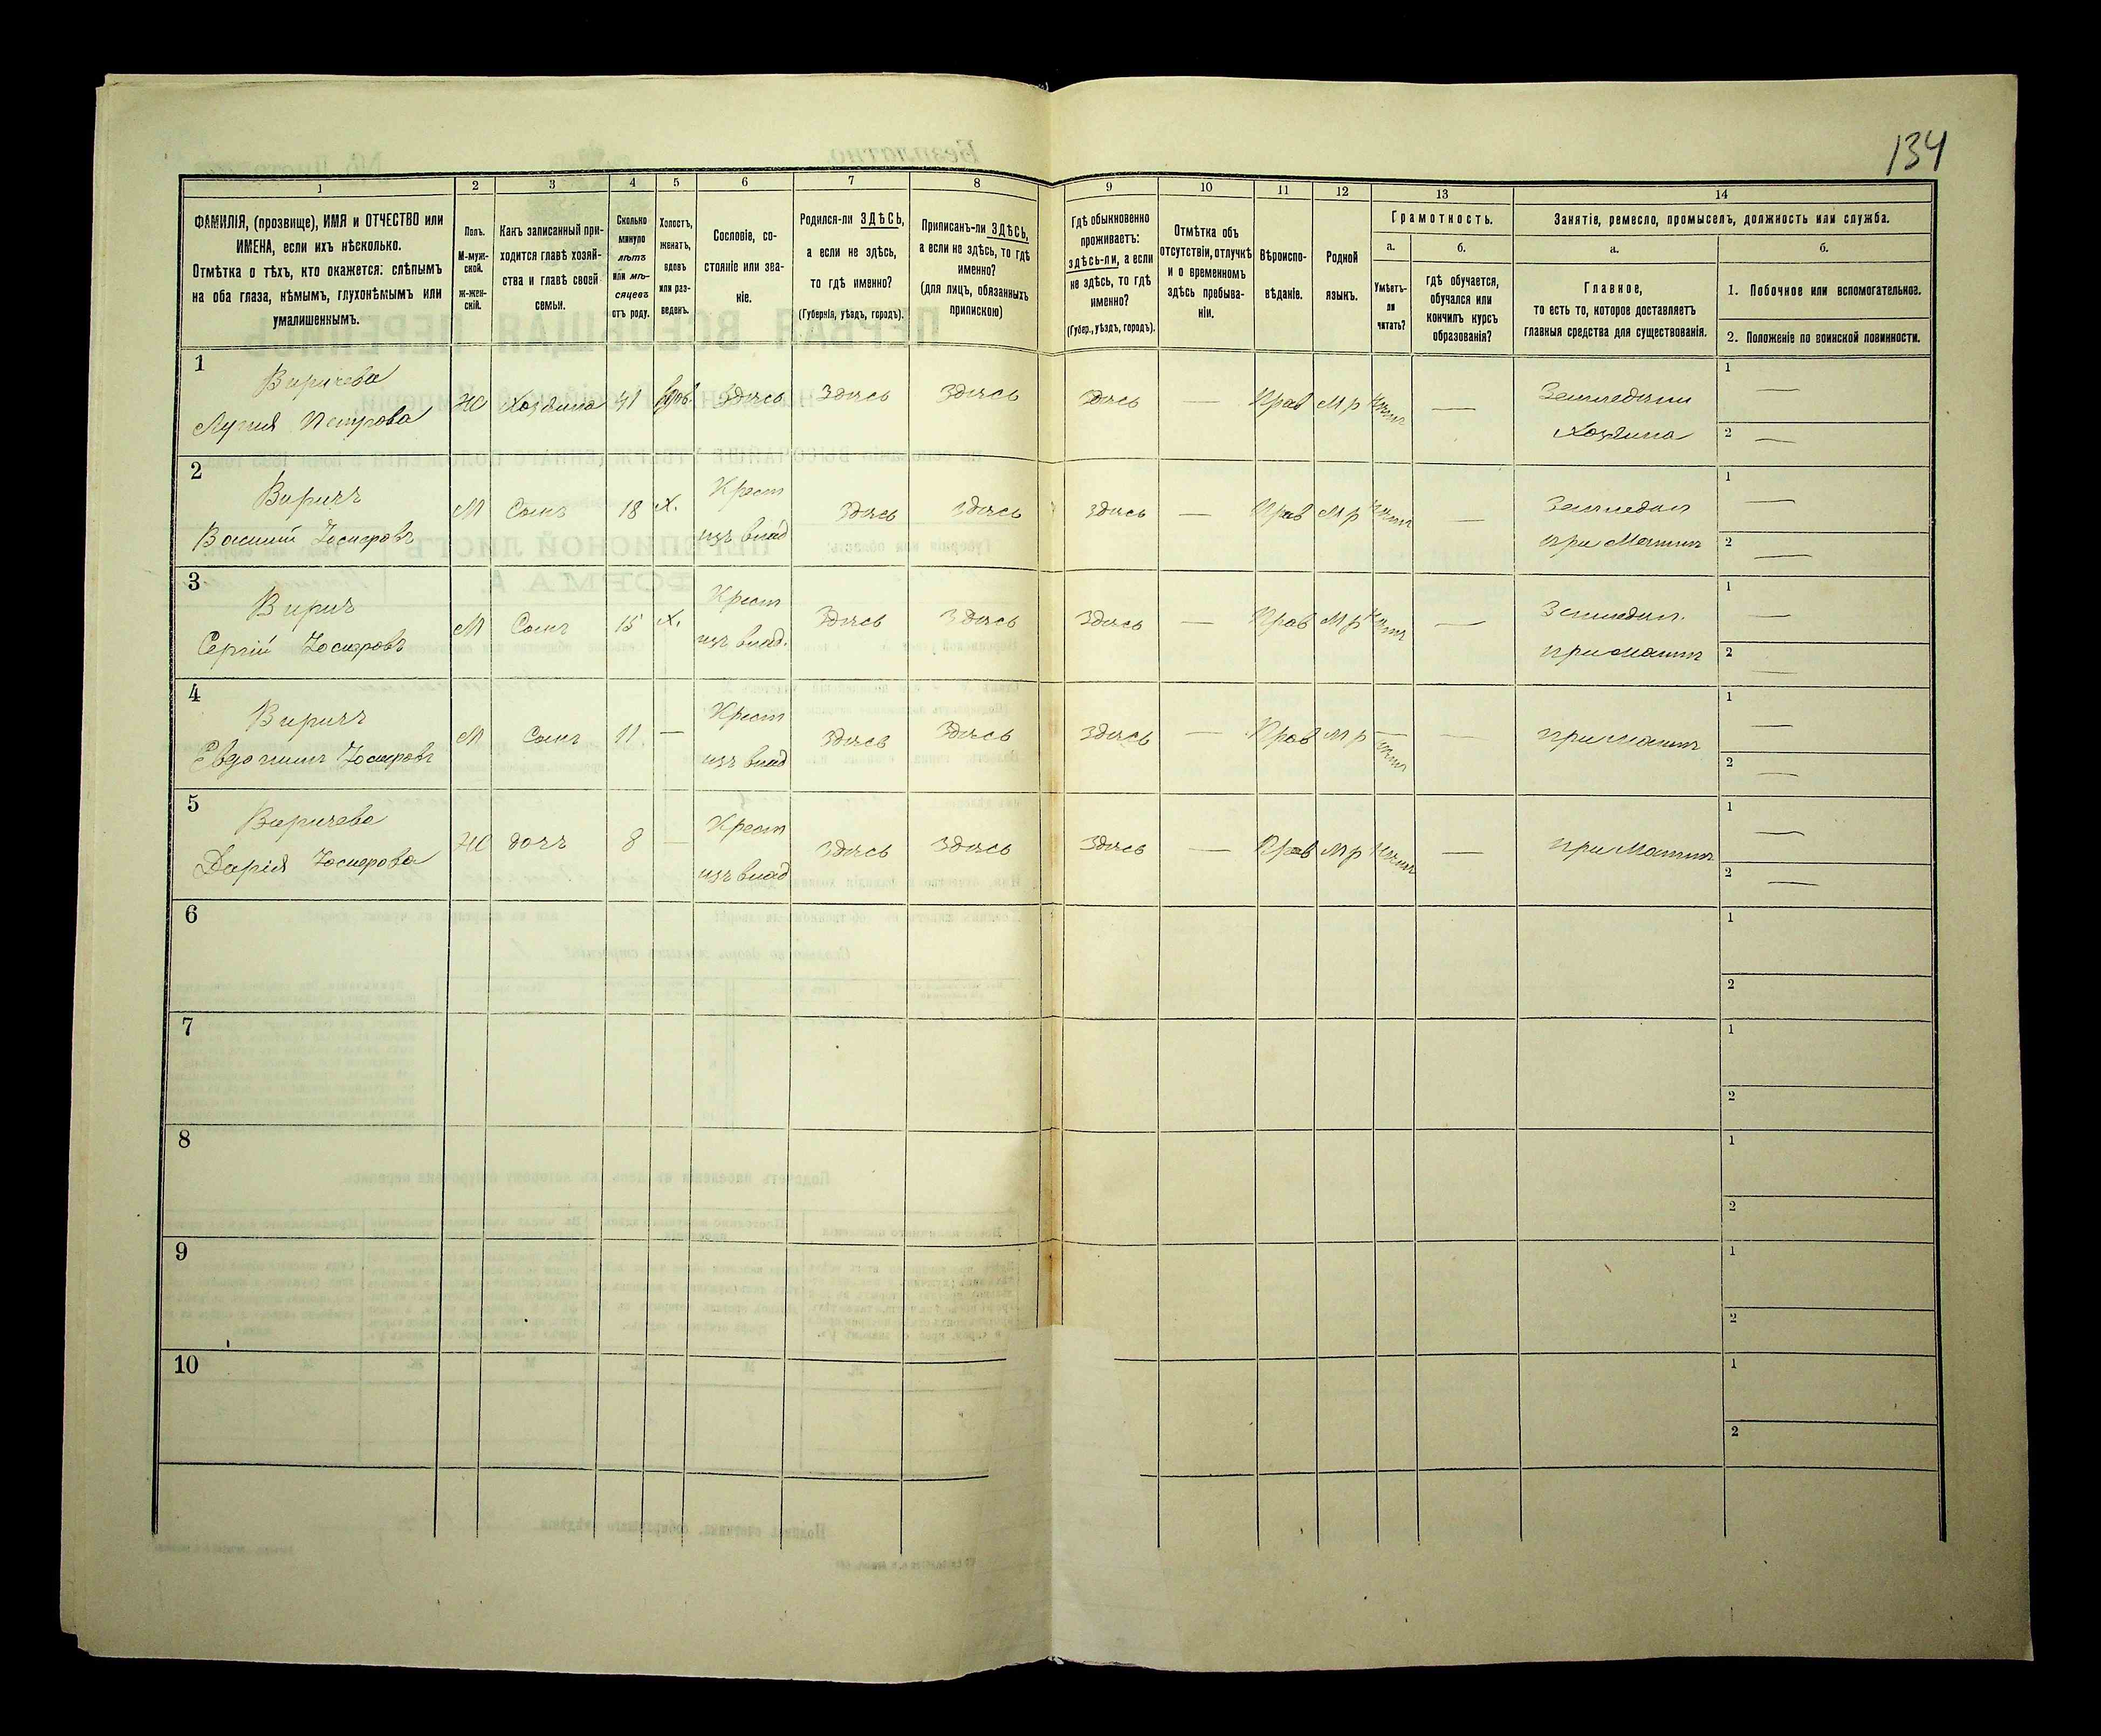 134
1
2
3
4
5
6
7
8
9
10
11
12
13
14
ФАМИЛІЯ, (прозвище), ИМЯ и ОТЧЕСТВО или
ИМЕНА, если ихъ нѣсколько.
Отмѣтка о тѣхъ, кто окажется: слѣпымъ
на оба глаза, нѣмымъ, глухонѣмымъ или
умалишеннымъ.
Полъ.
М-муж-
ской.
Ж-жен-
скій.
Какъ записанный при-
ходится главѣ хозяй-
ства и главѣ своей
семьи.
Сколько
минуло
лѣтъ
или мѣ-
сяцевъ
отъ роду.
Холостъ,
женатъ,
вдовъ
или раз-
веденъ.
Сословіе, со-
стояніе или зва-
ніе.
Родился-ли ЗДѢСЬ,
а если не здѣсь,
то гдѣ именно?
(Губернія, уѣздъ, городъ).
Приписанъ-ли ЗДѢСЬ,
а если не здѣсь, то гдѣ
именно?
(для лицъ, обязанныхъ
припискою)
Гдѣ обыкновенно
проживаетъ:
здѣсь-ли, а если
не здѣсь, то гдѣ
именно?
(Губер., уѣздъ, городъ).
Отмѣтка объ
отсутствіи, отлучкѣ
и о временномъ
здѣсь пребыва-
ніи.
Вѣроиспо-
вѣданіе.
Родной
языкъ.
Грамотность.
а.
Умѣетъ-
ли
читать?
б.
Гдѣ обучается,
обучался или
кончилъ курсъ
образованія?
Занятіе, ремесло, промыселъ, должность или служба.
а.
Главное,
то есть то, которое доставляетъ
главныя средства для существованія.
б.
1. Побочное или вспомогательное.
2. Положеніе по воинской повинности.
1
Виричева
Петрова
Ж
Хозяика
41
вдов.
Здѣсь
Здѣсь
Здѣсь
Здѣсь
—
Прав
М р
—
Хозяика
1 —
2 —
2
Виричъ
Василий Іосифовъ
М
Сынъ
18
х.
Крест
изъ влад
Здѣсь
Здѣсь
Здѣсь
—
Прав
М р
—
Земледѣл
при Матит
1 —
2 —
3
Вирич
Сергій Іосифовъ
М
Сынъ
15
х.
Крест
изъ влад.
Здѣсь
Здѣсь
Здѣсь
—
Прав
М р
—
Земледѣл.
1 —
2 —
4
Виричъ
Іосифовъ
М
Сынъ
11
—
Крест
изъ влад
Здѣсь
Здѣсь
Здѣсь
—
Прав
М р
—
1 —
2 —
5
Виричева
Дарія Іосифова
Ж
дочъ
8
—
Крест
изъ влад
Здѣсь
Здѣсь
Здѣсь
—
Прав
М р
—
1 —
2 —
6
1
2
7
1
2
8
1
2
9
1
2
10
1
2